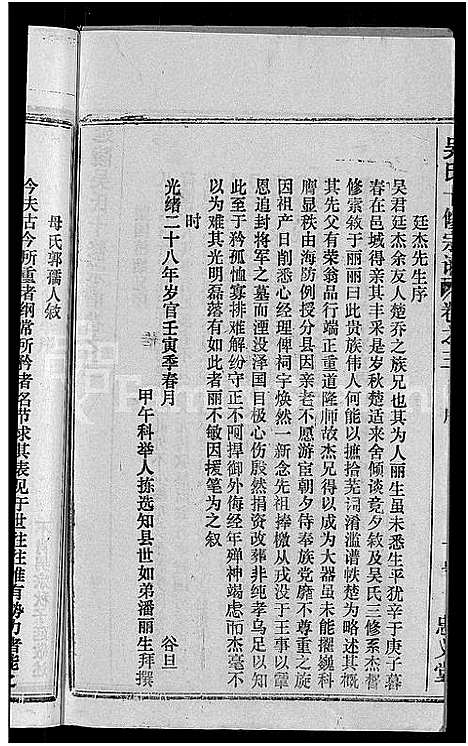 吴氏修宗谱 卷之三
忠义堂
廷杰先生序
吴君廷杰余友人楚乔之族兄也其为人丽生虽未悉生平犹辛于庚子暮
春在邑城得亲其丰采于是岁秋楚适来舍倾谈竟夕叙及吴氏三修系杰督
修崇叙于丽丽曰此贵族伟人何能以摭拾芜词淆滥谱帙楚为略述其概
其先父有荣翁品行端正重道隆师故杰兄得以成为大器虽未能擢巍科
膺显秩由海防例授分县因亲老不愿游宦朝夕侍奉族党靡不尊重之旋
因祖产日削悉心经理俾祠宇焕然一新念先祖捧檄从戎没于王事以覃
恩追封将军之墓而湮没泽国目极心伤殷然捐资改葬非纯孝乌足以知
此至于矜孤恤寡排难解纷守正不阿捍御外侮经年殚神竭虑而杰毫不
以为难其光明磊落有如此者丽不敏因援笔为之叙
时
光绪二十八年岁官壬寅季春月 谷旦
甲午科举人拣选知县世如弟潘丽生拜撰
母氏郭孺人叙
今夫古今所重者纲常所矜者名节求其表见于世往往惟有势力者能之